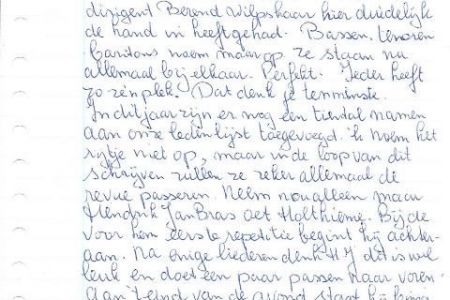 dirigent Berend Wilpshaar hier duidelijk
de hand in heeft gehad. Bassen, tenoren
baritons noem maar op ze staan na
allemaal bij elkaar. Perfekt. Ieder heeft
zo z'en plek. Dat denk je tenminste.
In dit jaar zijn er nog een tiental namen
aan onze ledenlijst toegevoegd. 'k Noem het
rijtje niet op, maar in de loop van dit
schrijven zullen ze zeker allemaal de
revue passeren. Neem nou alleen maar
Hendrik Jan Bras aet Holthieme. Bij de
voor hem eerste repetitie begint hij achter-
aan. Na enige liederen denkt HJ dit is wel
leuk en doet een paar passen naar voren.
Aan 't eind van de avond staat hij